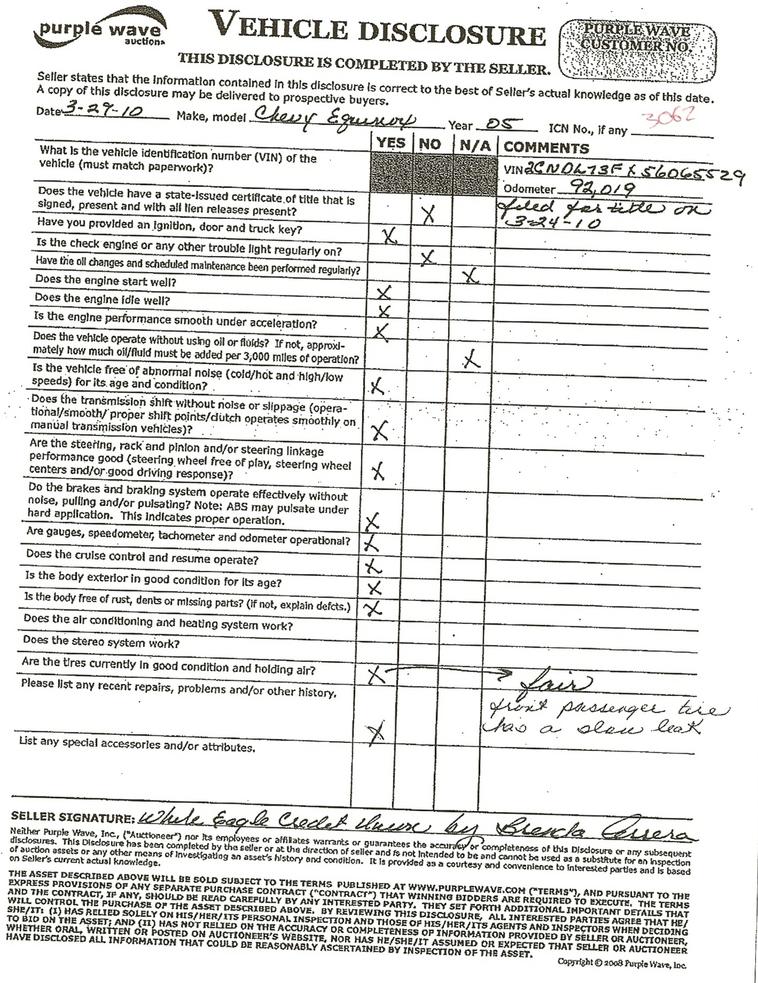 purple wave
auction
VEHICLE DISCLOSURE
THIS DISCLOSURE IS COMPLETED BY THE SELLER.
PURPLE WAVE
CUSTOMER NO.
3062
Seller states that the information contained in this disclosure is correct to the best of Seller's actual knowledge as of this date.
A copy of this disclosure may be delivered to prospective buyers.
Date 3-29-10 Make, model Chevy Equinox Year 05 ICN No., if any
YES NO N/A COMMENTS
What is the vehicle identification number (VIN) of the
vehicle (must match paperwork)?
VIN 2CNDL73FX56065529
Odometer 92,019
Does the vehicle have a state-issued certificate of title that is
signed, present and with all lien releases present? X filed for title on
3-24-10
Have you provided an ignition, door and truck key? X
Is the check engine or any other trouble light regularly on? X
Have the oil changes and scheduled maintenance been performed regularly? X
Does the engine start well? X
Does the engine idle well? X
Is the engine performance smooth under acceleration? X
Does the vehicle operate without using oil or fluids? If not, approxi-
mately how much oil/fluid must be added per 3,000 miles of operation? X
Is the vehicle free of abnormal noise (cold/hot and high/low
speeds) for its age and condition? X
Does the transmission shift without noise or slippage (opera-
tional/smooth/proper shift points/clutch operates smoothly on
manual transmission vehicles)? X
Are the steering, rack and pinion and/or steering linkage
performance good (steering wheel free of play, steering wheel
centers and/or good driving response)? X
Do the brakes and braking system operate effectively without
noise, pulling and/or pulsating? Note: ABS may pulsate under
hard application. This indicates proper operation. X
Are gauges, speedometer, tachometer and odometer operational? X
Does the cruise control and resume operate? X
Is the body exterior in good condition for its age? X
Is the body free of rust, dents or missing parts? (if not, explain defcts.) X
Does the air conditioning and heating system work?
Does the stereo system work?
Are the tires currently in good condition and holding air? X fair
Please list any recent repairs, problems and/or other history. X front passenger tire
has a slow leak
List any special accessories and/or attributes.
SELLER SIGNATURE: White Eagle Credit Union by Brenda
Neither Purple Wave, Inc., ("Auctioneer") nor its employees or affiliates warrants or guarantees the accuracy or completeness of this Disclosure or any subsequent
disclosures. This Disclosure has been completed by the seller or at the direction of seller and is not intended to be and cannot be used as a substitute for an inspection
of auction assets or any other means of investigating an asset's history and condition. It is provided as a courtesy and convenience to interested parties and is based
on Seller's current actual knowledge.
THE ASSET DESCRIBED ABOVE WILL BE SOLD SUBJECT TO THE TERMS PUBLISHED AT WWW.PURPLEWAVE.COM ("TERMS"), AND PURSUANT TO THE
EXPRESS PROVISIONS OF ANY SEPARATE PURCHASE CONTRACT ("CONTRACT") THAT WINNING BIDDERS ARE REQUIRED TO EXECUTE. THE TERMS
AND THE CONTRACT, IF ANY, SHOULD BE READ CAREFULLY BY ANY INTERESTED PARTY. THEY SET FORTH ADDITIONAL IMPORTANT DETAILS THAT
WILL CONTROL THE PURCHASE OF THE ASSET DESCRIBED ABOVE. BY REVIEWING THIS DISCLOSURE, ALL INTERESTED PARTIES AGREE THAT HE/
SHE/IT: (I) HAS RELIED SOLELY ON HIS/HER/ITS PERSONAL INSPECTION AND THOSE OF HIS/HER/ITS AGENTS AND INSPECTORS WHEN DECIDING
TO BID ON THE ASSET; AND (II) HAS NOT RELIED ON THE ACCURACY OR COMPLETENESS OF INFORMATION PROVIDED BY SELLER OR AUCTIONEER,
WHETHER ORAL, WRITTEN OR POSTED ON AUCTIONEER'S WEBSITE, NOR HAS HE/SHE/IT ASSUMED OR EXPECTED THAT SELLER OR AUCTIONEER
HAVE DISCLOSED ALL INFORMATION THAT COULD BE REASONABLY ASCERTAINED BY INSPECTION OF THE ASSET.
Copyright © 2008 Purple Wave, Inc.